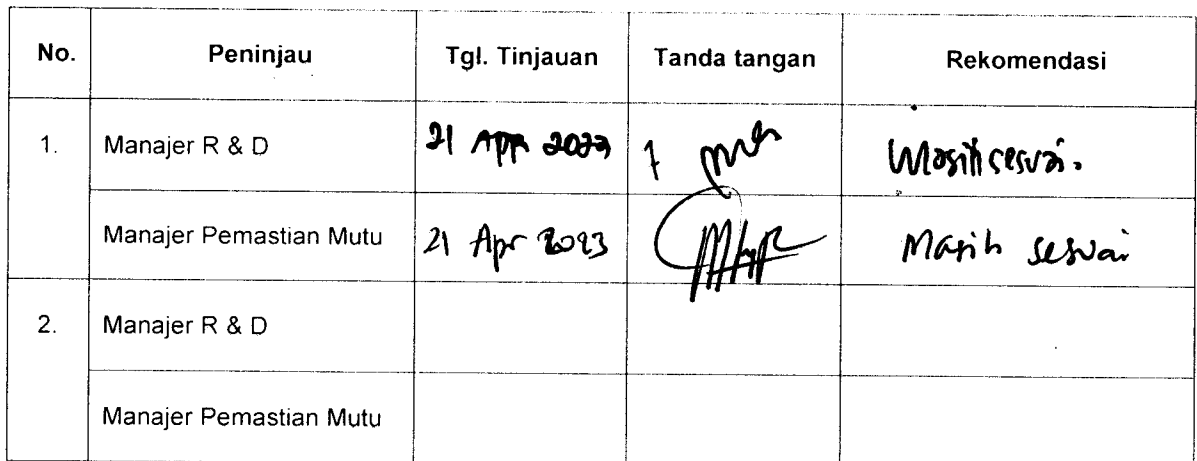 No. Peninjau Tgl. Tinjauan Tanda tangan Rekomendasi
1. Manajer R & D 21 APR 2023 Masih sesuai.
Manajer Pemastian Mutu 21 Apr 2023 Masih sesuai
2. Manajer R & D
Manajer Pemastian Mutu